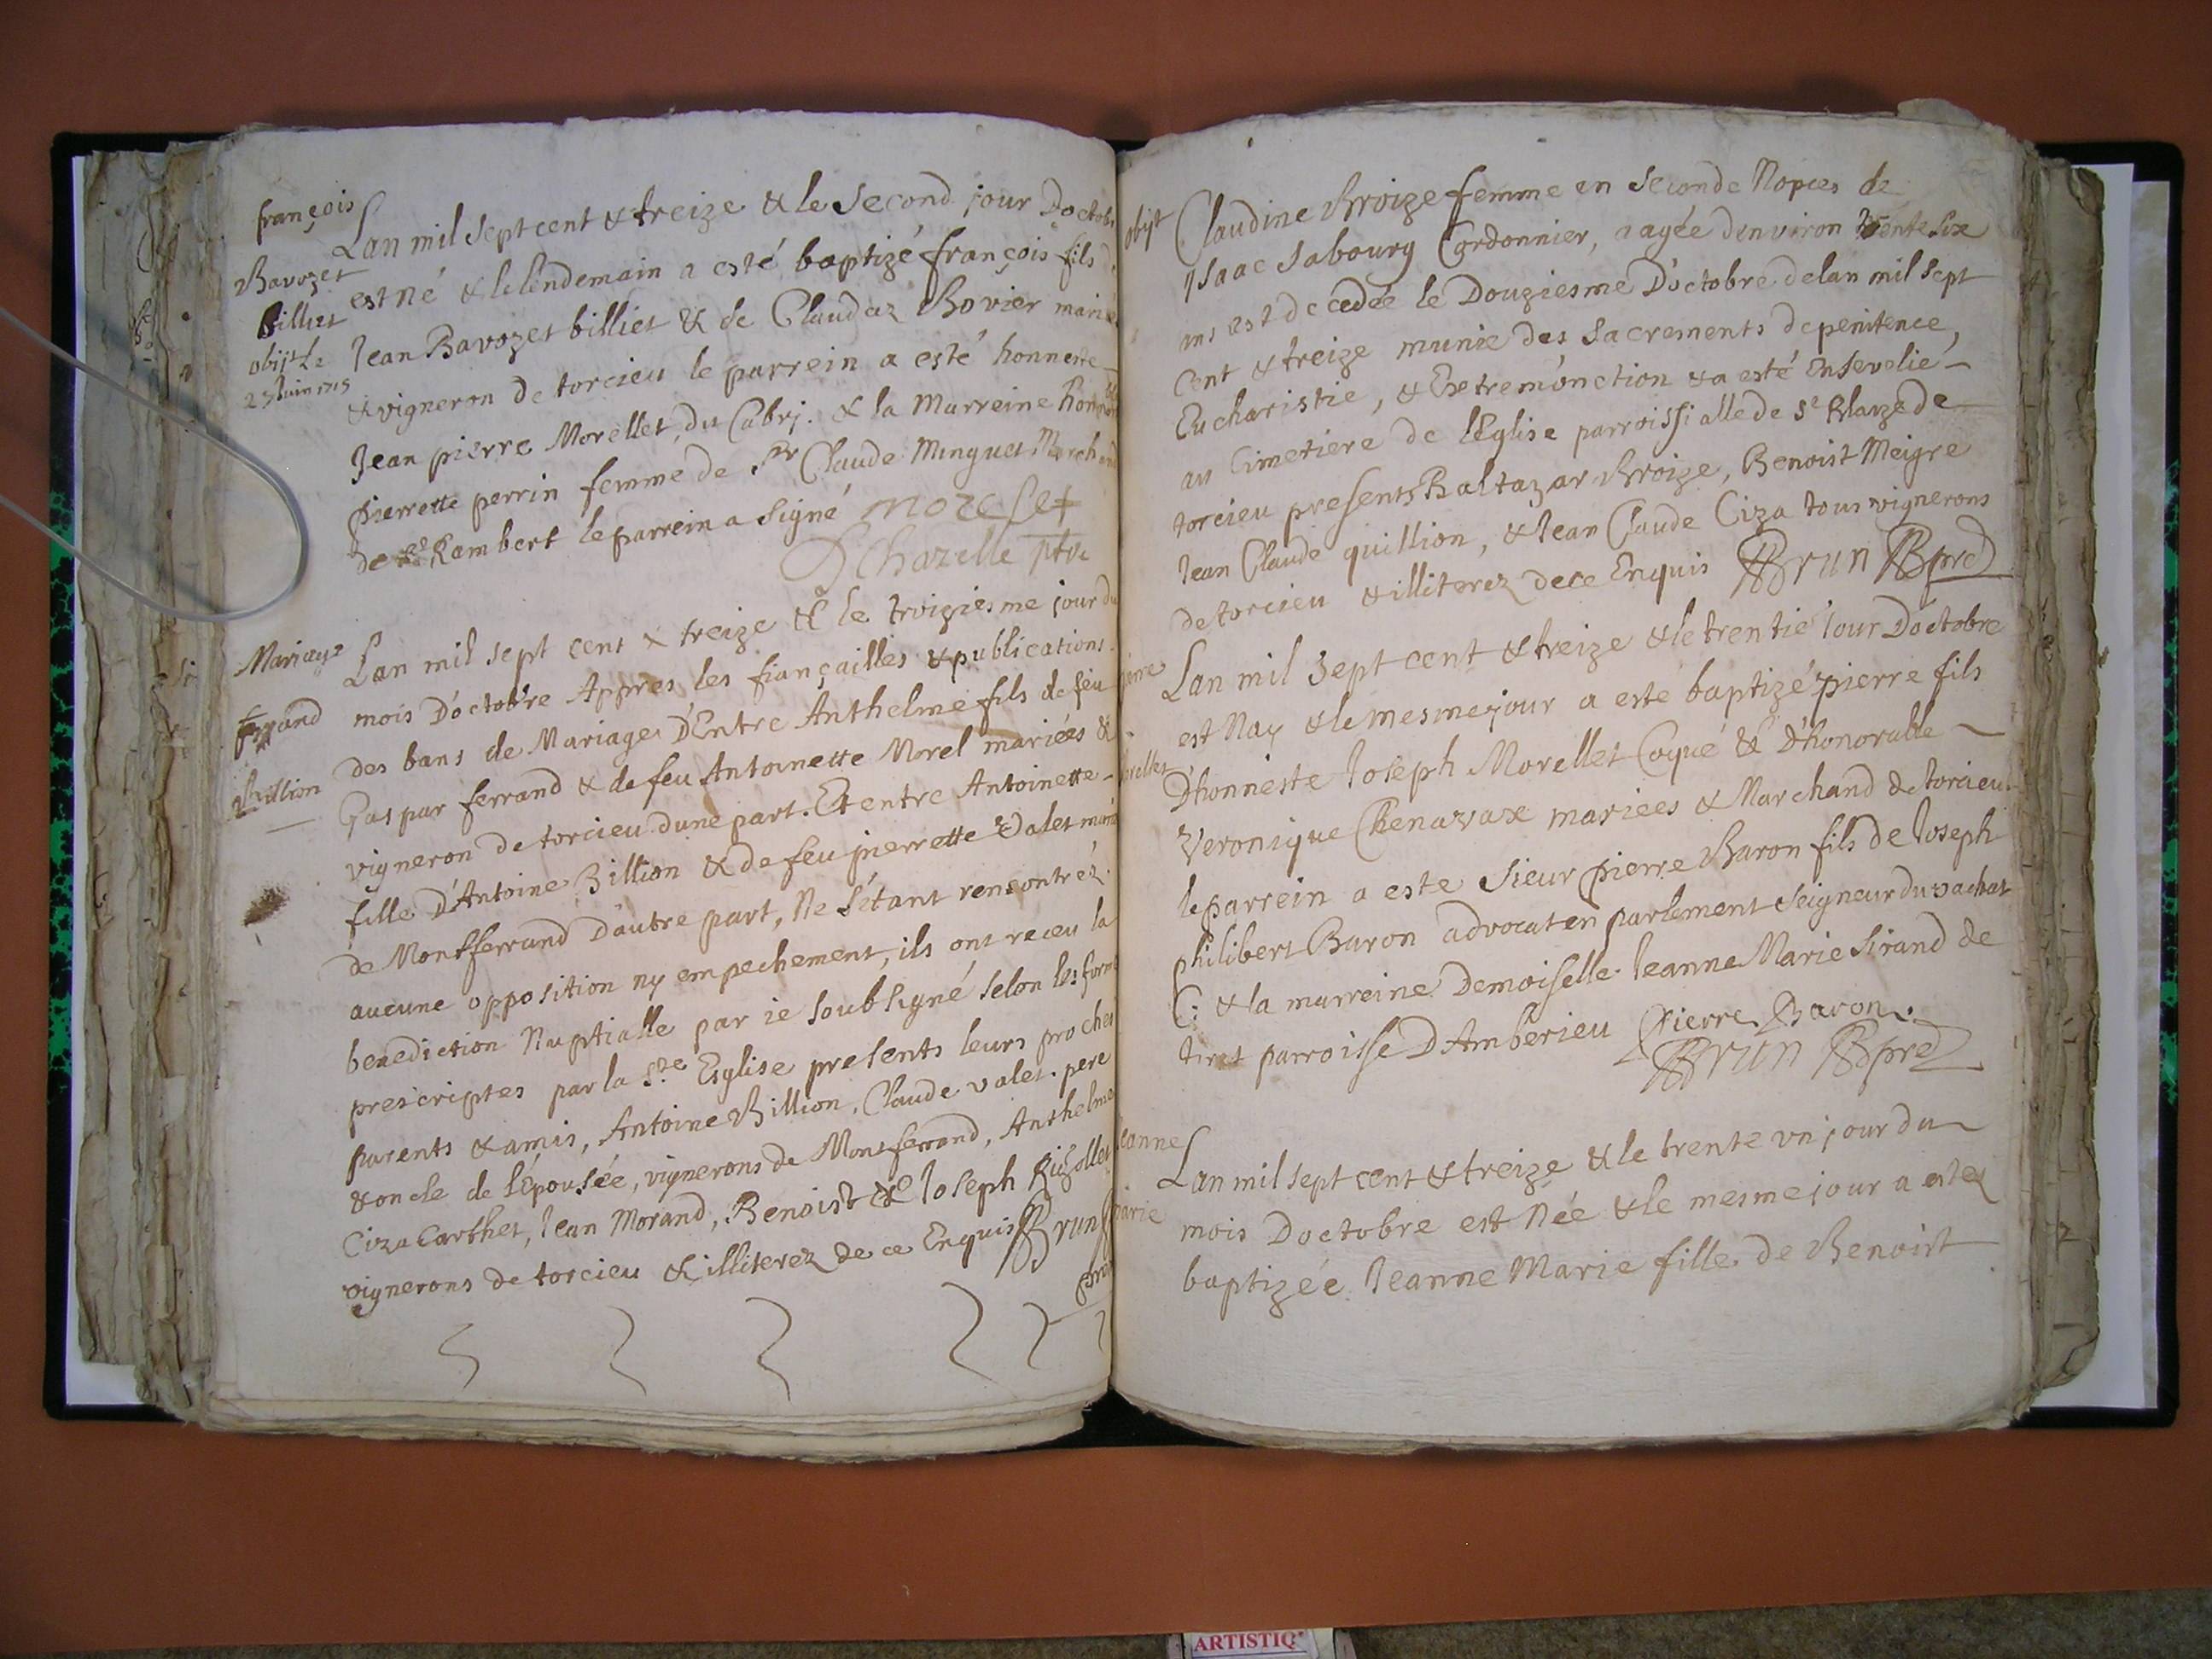 françois
Bavozet
Billiet
obijt le
25 Juin 1715
Lan mil sept cent & treize & le second jour Doctob
est né & le lendemain a esté baptizé françois fils
Jean Bavozet billiet & de Claudaz Bovier marié
& vigneron de torcieu le parrein a esté honneste
Jean pierre Morellet, du Cabrj. & la Marreine hon
pierrette perrin femme de Sr Claude Minguet March
de St Rambert le parrein a signé morelet
Chazelle ptre
Mariage
ferrand
Billion
Lan mil sept cent & treize & le troiziesme jour du
mois D'octobre Appres les fiançailles & publications
des bans de Mariage D'Entre Anthelme fils de feu
Gaspar ferrand & de feu Antoinette Morel mariées &
vigneron de torcieu dune part. Et entre Antoinette
fille D'Antoine Billion & de feu pierrette Valet marié
de Montferrand D'autre part, Ne s'étant rencontréz
aucune opposition ny empechement, ils ont receu la
benediction Nuptialle par ie soubsigné selon les forme
prescriptes par la Ste Esglise presents leurs proches
parents & amis, Antoine Billion, Claude valet. pere
& oncle de l'épousée, vignerons de Montferrand, Anthelme
Ciza Carthet, Jean Morand, Benoist & Joseph Rigollet
vignerons de torcieu & illiterez de ce Enquis Brun
obijt
Claudine Broize femme en seconde Nopces de
Isaac Sabourg Cordonnier, aagée denviron trente six
ans est decedée le Douziesme D'octobre de lan mil sept
Cent & treize munie des Sacrements de penitence,
Eucharistie, & Extremonction & a esté Ensevelie
au Cimetiere de lEglise parroissialle de St Blaize de
torcieu presents Baltazar Broize, Benoist Meigre
Jean Claude quillion, & Jean Claude Ciza tous vignerons
de torcieu & illiterez de ce Enquis Brun
pierre
Lan mil sept cent & treize & le trentie Jour D'octobre
est Nay & le mesme jour a este baptizé pierre fils
D'honneste Joseph Morellet Coque & D'honorable
Veronique Chenavax mariees & Marchand de torcieu
le parrein a este sieur pierre Baron fils de Joseph
philibert Baron advocat en parlement Seigneur du vachat
& la marreine Demoiselle Jeanne Marie Sirand de
tiret parroisse D'Amberieu Pierre Baron.
Brun
Jeanne
marie
Lan mil sept cent & treize & le trente un jour du
mois Doctobre est Née & le mesme jour a estez
baptizée Jeanne Marie fille de Benoist
ARTISTIQ